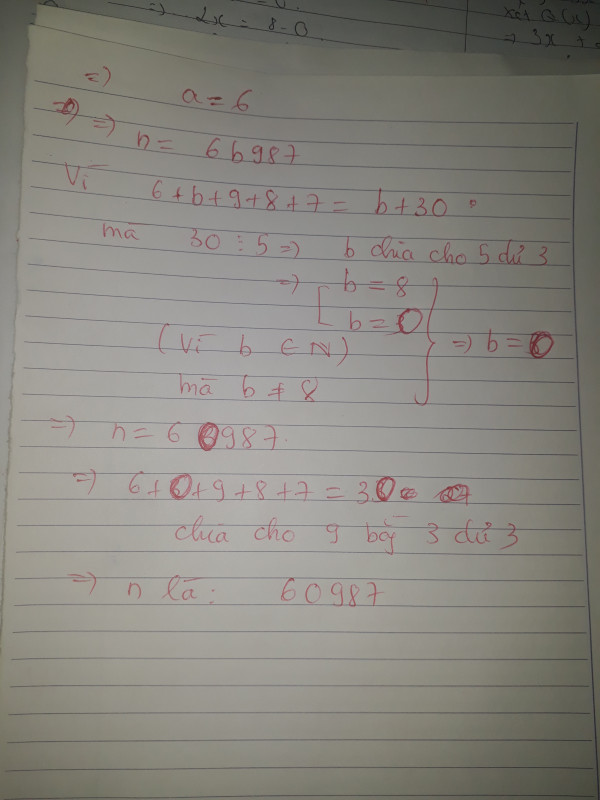 => 2x = 8 - 0
=> 3x +
=> a = 6
=> => n = 6b987
Vì 6+b+9+8+7 = b+30
mà 30 ⋮ 5 => b chia cho 5 dư 3
=> [ b = 8
b = 0
(Vì b ∈ N) } => b = 0
mà b ≠ 8
=> n = 60987.
=> 6+0+9+8+7 = 30
chia cho 9 bằng 3 dư 3
=> n là: 60987